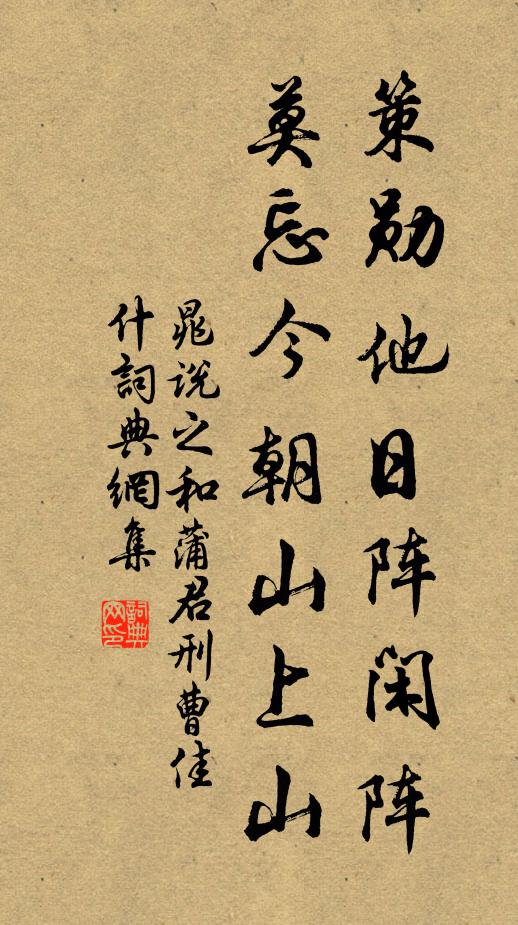 策勋他日阵闲阵
莫忘今朝山上山
晁说之和蒲君刑曹佳
什詞典網集
詞典
网印